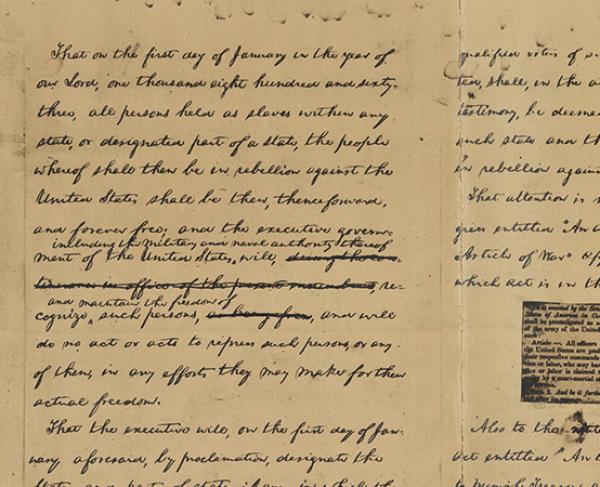 That on the first day of January in the year of
our Lord, one thousand eight hundred and sixty-
three, all persons held as slaves within any
state, or designated part of a state, the people
whereof shall then be in rebellion against the
United States shall be then, thenceforward,
and forever free; and the executive govern-
including the military and naval authority thereof
ment of the United States, will, during the con-
tinuance in office of the present incumbent, re-
and maintain the freedom of
cognize, such persons, as being free, and will
do no act or acts to repress such persons, or any
of them, in any efforts they may make for their
actual freedom.
That the executive will, on the first day of Jan-
uary aforesaid, by proclamation, designate the
qualified votes of
ted, shall, in the
testimony, be deemed
such state and th
in rebellion again
That attention is
gress entitled "An
Article of War" 
which act is in th
enacted by the Sen
States of America in Con
shall be promulgated
of the army of the United
Article —. All officers
the United States are
their respective commands
vice or labor, who may have
vice or labor is claimed
by a court-martial
service.
And be it furth
Also to the
act entitled "An